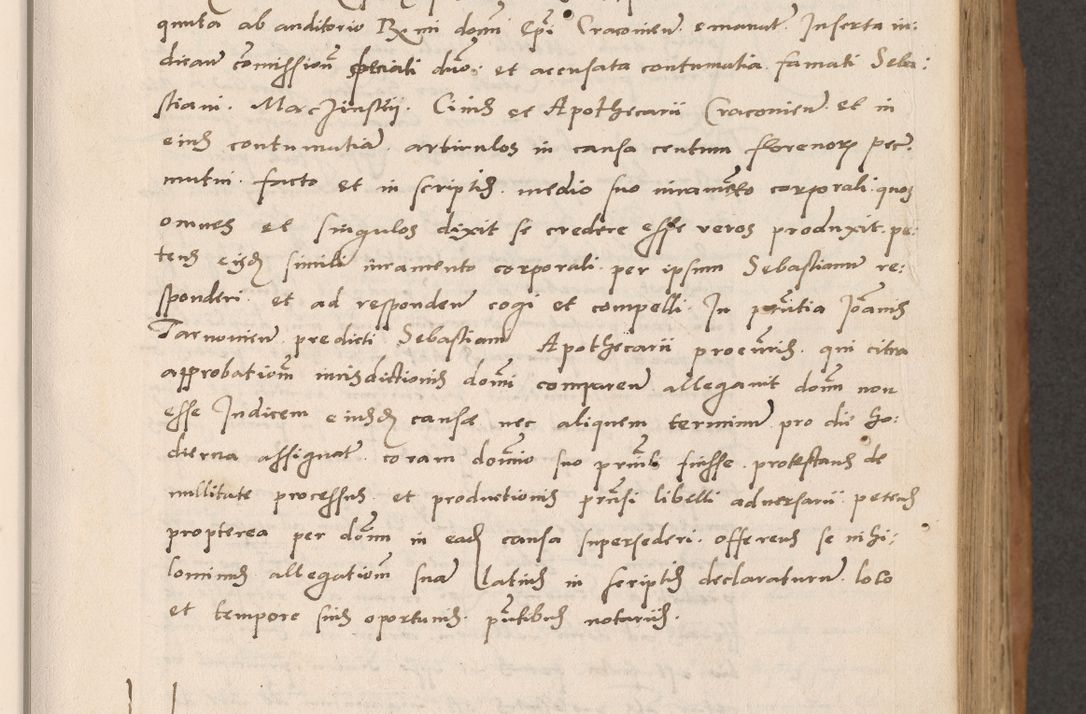 quita ab auditorio R. mi domi Epi Cracovien emanat Inserta in:
dicatur comission speciali duo: et acensata contumatia famati Seba:
stiani. Marcjinskij. Civis et Apothecarii Cracovien et in
eius contumatia articulos in causa centum florenorum pec:
mutui. facto et in scriptis medio suo iuramento corporali quos
omnes et singulos dixit se credere esse veros produxit. pe:
tens eisdem simili iuramento corporali per ipsum Sebastianum re:
sponderi et ad responden cogi et compelli. In pntia Joannis
Tarnovien predicti Sebastiani Apothecarii procuris. qui citra
approbationem iurisdictionis domi comparen allegavit domm non
esse Judicem eiusdem causæ nec aliquem terminum pro die ho:
dierna assignat. coram domino suo prnli fuisse. protestans de
nullitate processus. et productionis prnsi libelli adversarii petens
propterea per domm in eadem causa supersederi. offerens se nihi:
lominus allegationem suam latius in scriptis declaraturum loco
et tempore suis oportunis. pntibus notariis.